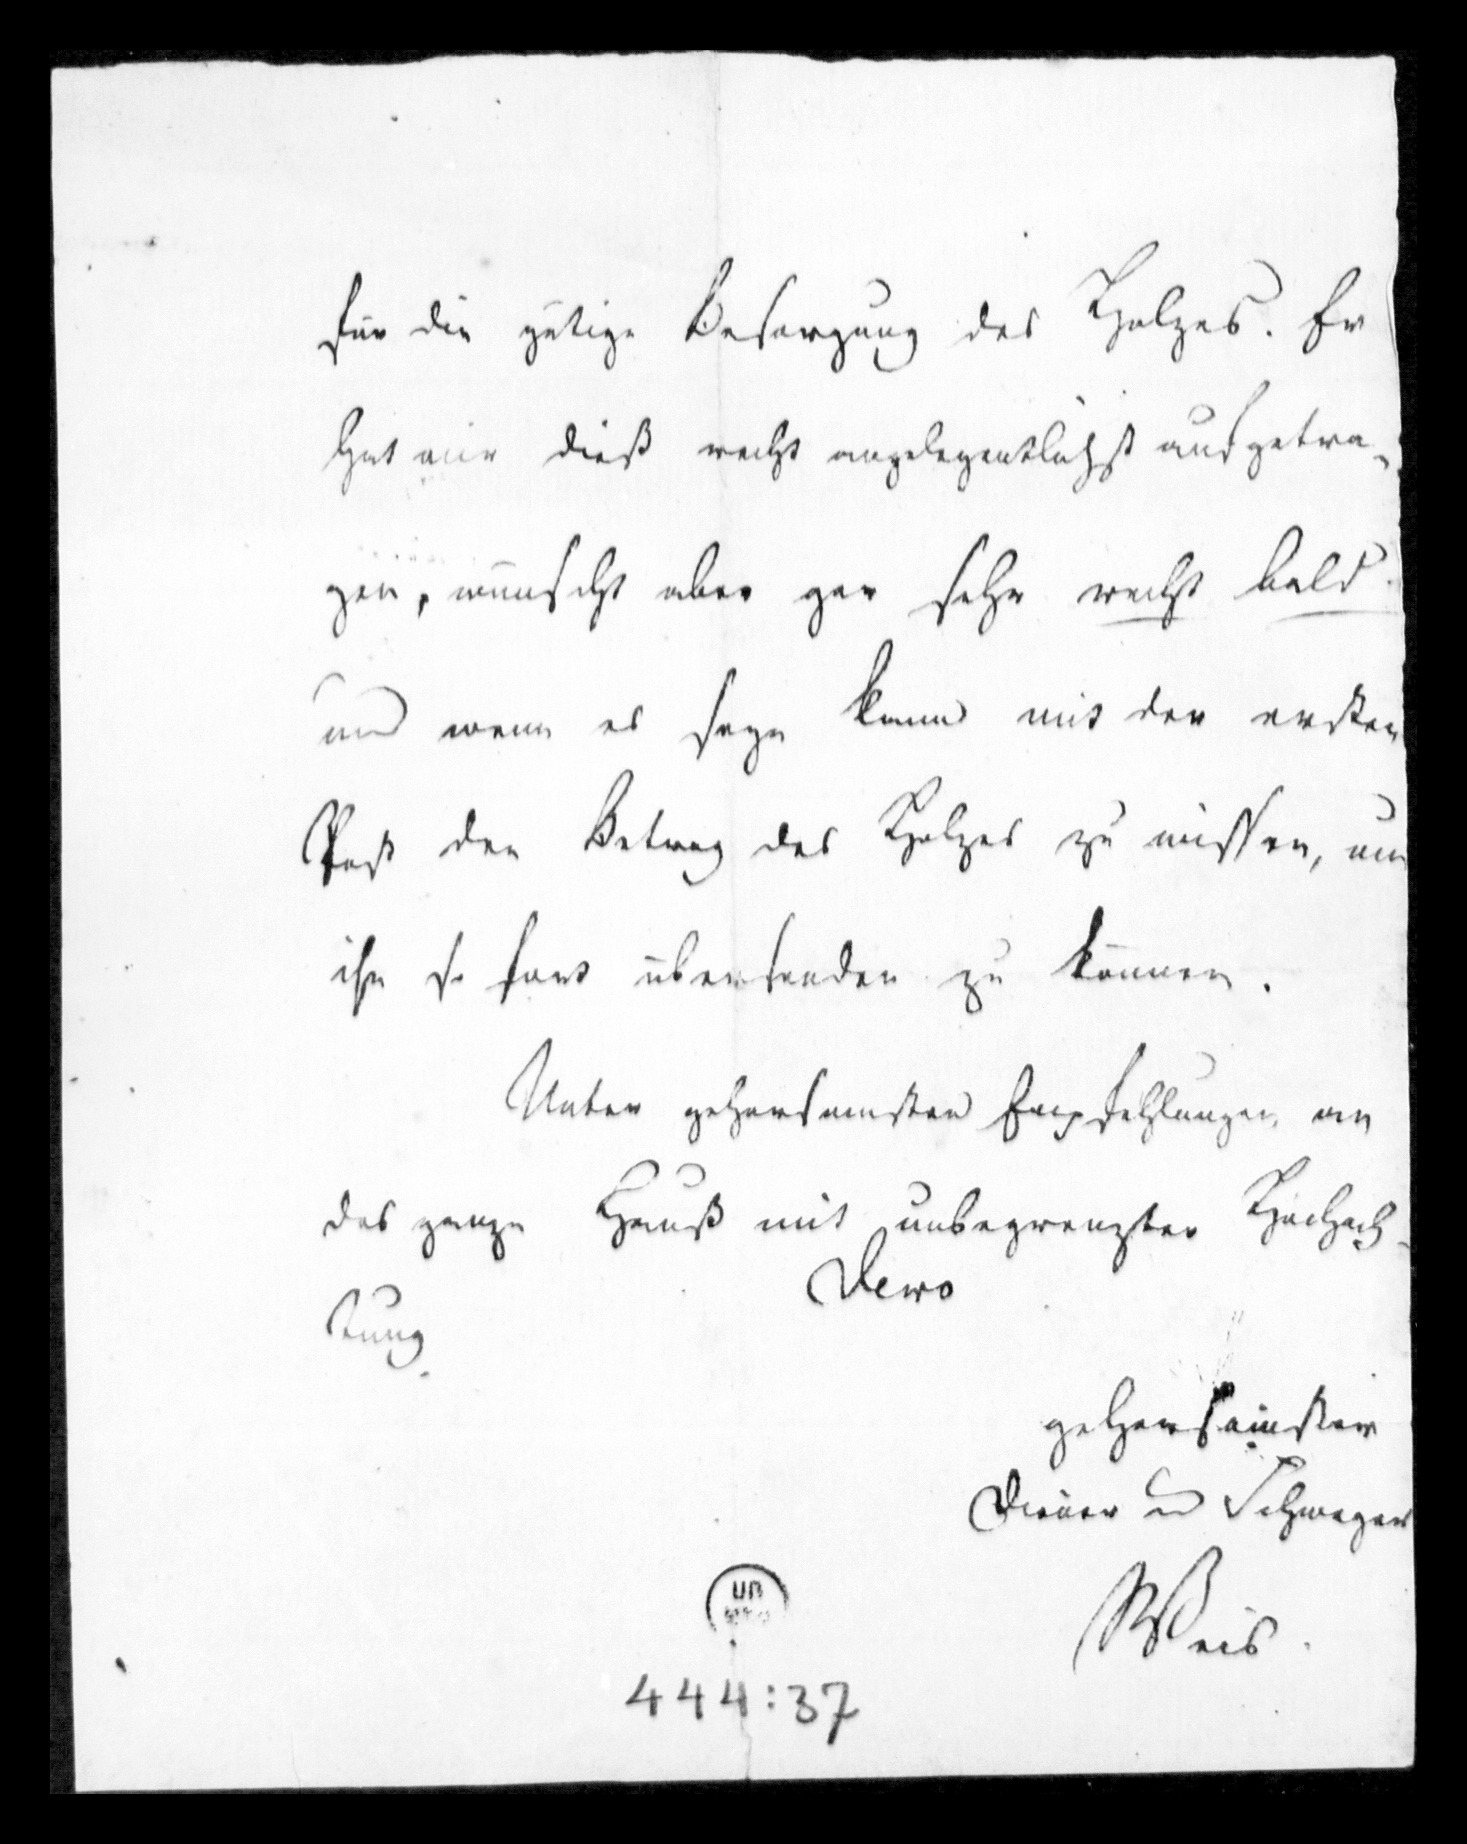 für die gütige Besorgung des Holzes. Er
hat mir dieß recht angelegentlichst aufgetra-
gen, wünscht aber gar sehr recht bald
und wenn es seyn kann mit der ersten
Post den Betrag des Holzes zu wissen, um
ihn so fort übersenden zu können.
Unter gehorsamsten Empfehlungen an
das ganze Hauß mit unbegrenzter Hochach-
tung
Dero
gehorsamster
Diener und Schwager
Weis.
UB
444:37